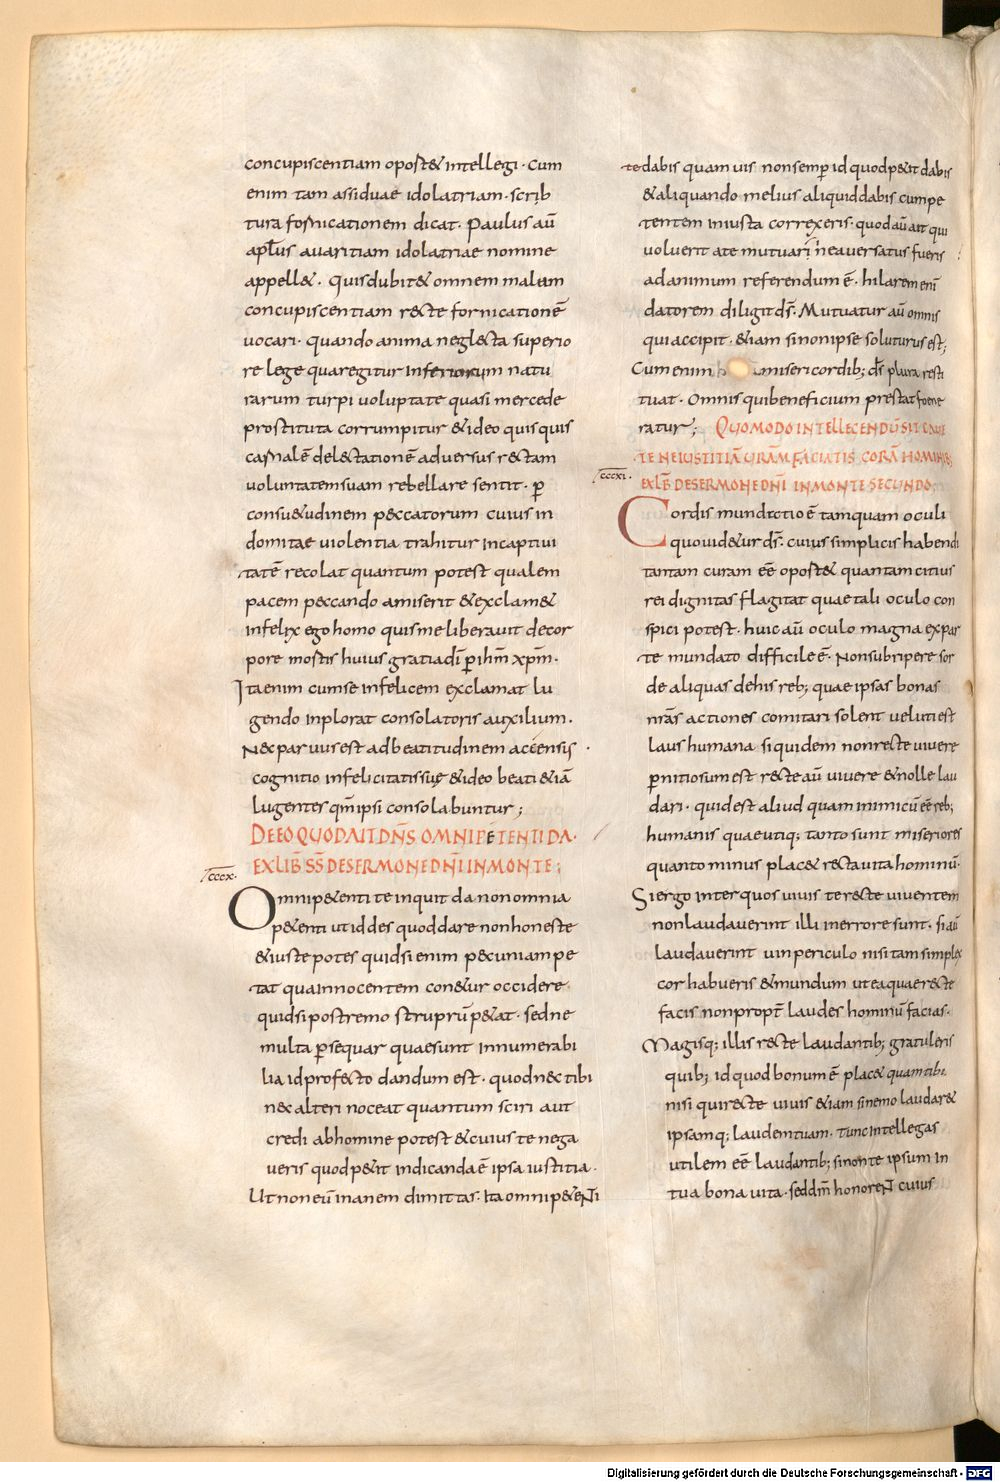 concupiscentiam oport& intellegi· Cum
enim tam assiduae idolatriam· scrib
tura fornicationem dicat· Paulus aū
apłus auaritiam idolatriae nomine
appell&· Quis dubit& omnem malam
concupiscentiam r&cte fornicationē
uocari· quando anima negl&cta superio
re lege qua regitur inferiorum natu
rarum turpi uoluptate quasi mercede
prostituta corrumpitur & ideo quis quis
carnalē del&ctationē aduersus r&ctam
uoluntatem suam rebellare sentit· p̱
consu&udinem p&ccatorum cuius in
domitae uiolentia trahitur in captiui
tatē recolat quantum potest qualem
pacem p&ccando amiserit & exclam&
infelix ego homo quis me liberauit de cor
pore mortis huius gratia dī p̱ ihm̄ xpm̄·
Ita enim cum se infelicem exclamat lu
gendo inplorat consolatoris auxilium·
N&c paruus est ad beatitudinem accensis·
cognitio infelicitatis suę & ideo beati &iā
lugentes qm̄ ipsi consolabuntur;
DE EO QUOD AIT DN̄S OMNI PETENTI DA·
EX LIB̄ SS̄ DE SERMONE DN̄I IN MONTE;
cccx·
Omni p&enti te inquit da non omnia
p&enti ut id des quod dare non honeste
& iuste potes quid si enim p&cuniam pe
tat qua innocentem con&ur occidere·
quid si postremo struprū p&at· sed ne
multa p̱sequar quae sunt innumerabi
lia id prof&cto dandum est· quod n&c tibi
n&c alteri noceat quantum sciri aut
credi ab homine potest & cui uste nega
ueris quod p&it indicanda ē ipsa iustitia·
Ut non eū inanem dimittas· Ita omni p&eNTi
te dabis quam uis non semp̱ id quod p&it dabis
& aliquando melius aliquid dabis cum pe
tentem iniusta correxeris· quod aū ait qui
uoluerit a te mutuari ne auersatus fueris
ad animum referendum ē· hilarem enī
datorem diligit ds̄· Mutuatur aū omnis
qui accipit· &iam si non ipse soluturus est;
Cum enim misericordib; ds̄ plura resti
tuat· Omnis qui beneficium prestat foene
ratur; QUOMODO INTELLEGENDŪ SIT CAUE
TE NE IUSTITIĀ URĀM FACIATIS CORĀ HOMINIB;
cccxi·
EX LIB̄ DE SERMONE DN̄I IN MONTE SECUNDO;
Cordis mundctio ē tamquam oculi
quo uid&ur ds̄· cuius simplicis habendi
tantam curam eē oport& quantam citius
rei dignitas flagitat quae tali oculo con
spici potest· huic aū oculo magna expar
te mundato difficile ē· Non subripere sor
de aliquas de his reb; quae ipsas bonas
nr̄as actiones comitari solent uelut est
laus humana si quidem non r&cte uiuere
p̱nitiosum est r&cte aū uiuere & nolle lau
dari· quid est aliud quam inimicū eē reb;
humanis quae utiq; tanto sunt miseriores
quanto minus plac& r&cta uita hominū·
Si ergo inter quos uiuis te r&cte uiuentem
non laudauerint illi in errore sunt· si aū
laudauerint uin periculo nisi tam simplex
cor habueris & mundum ut ea quae r&cte
facis non propt̄ laudes hominū facias·
Magisq; illis r&cte laudantib; gratuleris
quib; id quod bonum ē plac& quam tibi·
nisi qui r&cte uiuis &iam si nemo laudar&
ipsamq; laudem tuam· tunc intellegas
utilem eē laudantib; si non te ipsum in
tua bona uita· sed dm̄ honoreNT cuius
Digitalisierung gefördert durch die Deutsche Forschungsgemeinschaft - DFG